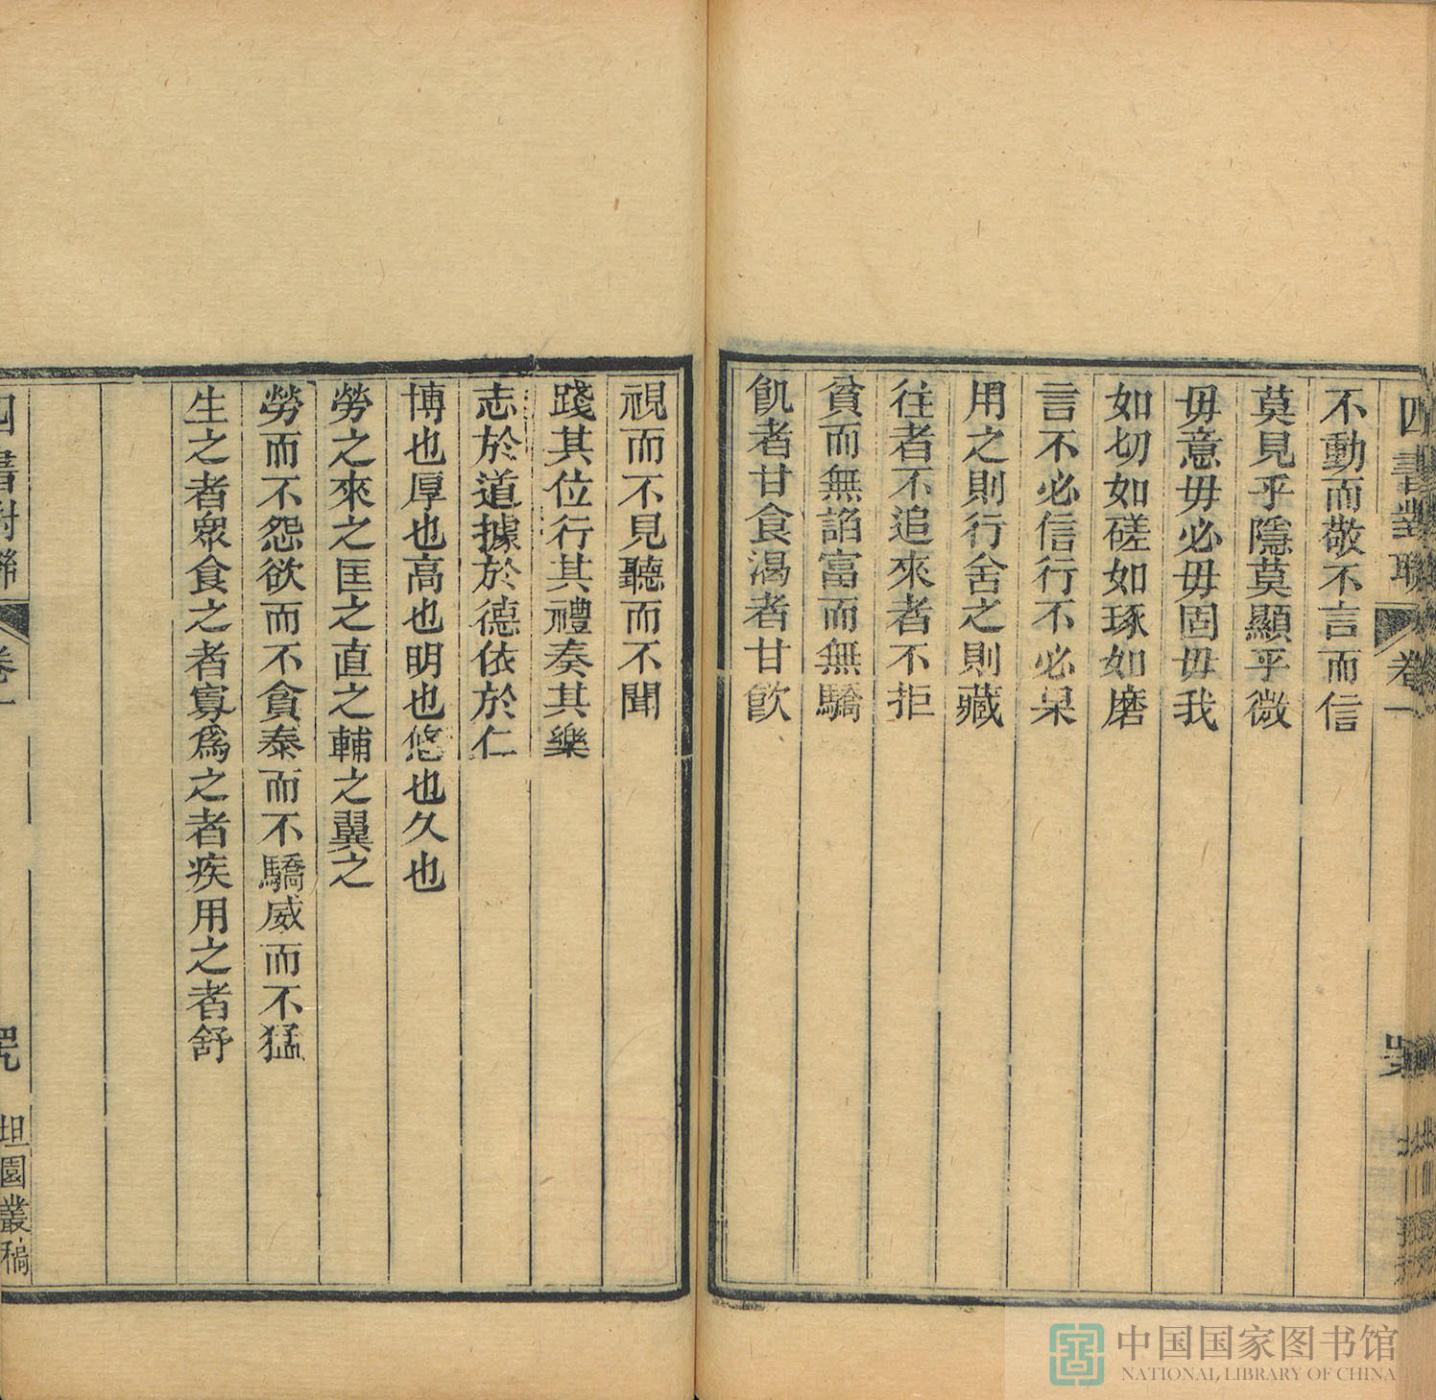 四書對聯 卷一
不動而敬不言而信
莫見乎隱莫顯乎微
毋意毋必毋固毋我
如切如磋如琢如磨
言不必信行不必果
用之則行舍之則藏
往者不追來者不拒
貧而無諂富而無驕
飢者甘食渴者甘飲
視而不見聽而不聞
踐其位行其禮奏其樂
志於道據於德依於仁
博也厚也高也明也悠也久也
勞之來之匡之直之輔之翼之
勞而不怨欲而不貪泰而不驕威而不猛
生之者眾食之者寡爲之者疾用之者舒
四書對聯 卷一 坦園叢稿
中国国家图书馆
NATIONAL LIBRARY OF CHINA